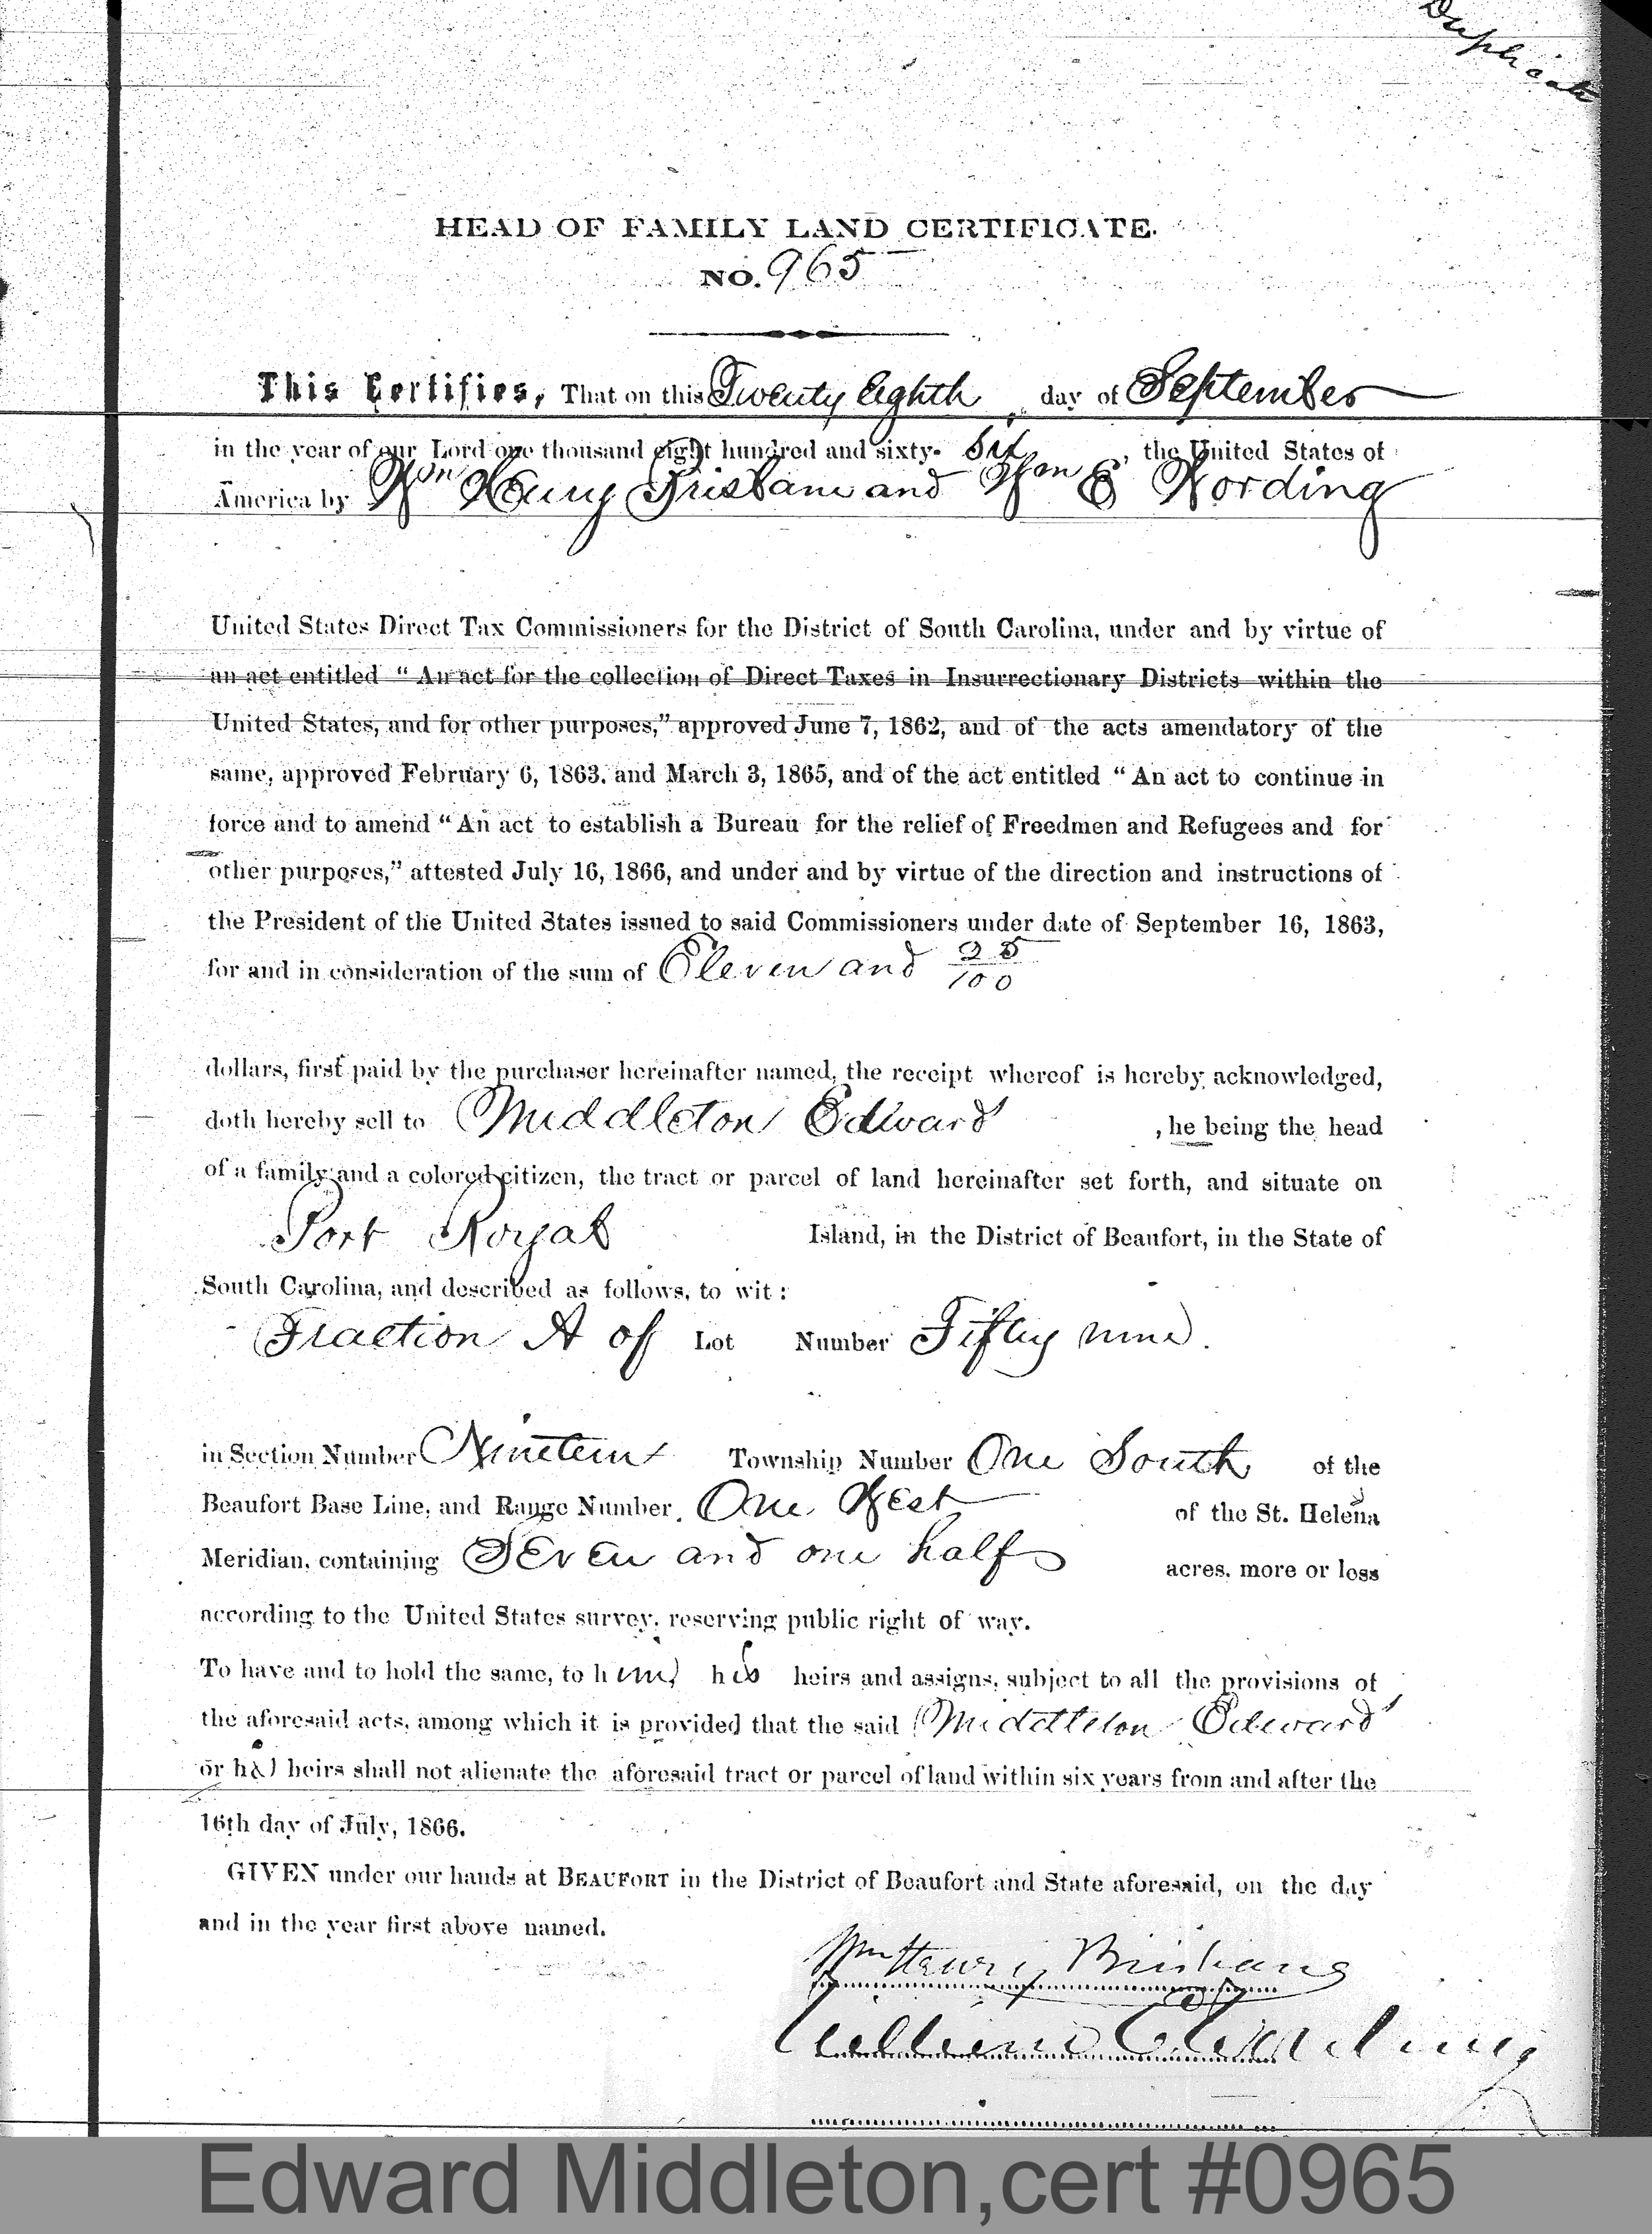 Duplicate
HEAD OF FAMILY LAND CERTIFICATE.
NO. 965
This Certifies, That on this Twenty Eighth day of September
in the year of our Lord one thousand eight hundred and sixty- six, the United States of
America by Wm Henry Brisbane and Wm E Wording
United States Direct Tax Commissioners for the District of South Carolina, under and by virtue of
an act entitled "An act for the collection of Direct Taxes in Insurrectionary Districts within the
United States, and for other purposes," approved June 7, 1862, and of the acts amendatory of the
same, approved February 6, 1863, and March 3, 1865, and of the act entitled "An act to continue in
force and to amend "An act to establish a Bureau for the relief of Freedmen and Refugees and for
other purposes," attested July 16, 1866, and under and by virtue of the direction and instructions of
the President of the United States issued to said Commissioners under date of September 16, 1863,
for and in consideration of the sum of Eleven and 25/100
dollars, first paid by the purchaser hereinafter named, the receipt whereof is hereby acknowledged,
doth hereby sell to Middleton Edward , he being the head
of a family and a colored citizen, the tract or parcel of land hereinafter set forth, and situate on
Port Royal Island, in the District of Beaufort, in the State of
South Carolina, and described as follows, to wit:
Fraction A of Lot Number Fifty nine.
in Section Number Nineteen Township Number One South of the
Beaufort Base Line, and Range Number One West of the St. Helena
Meridian, containing Seven and one half acres, more or less
according to the United States survey, reserving public right of way.
To have and to hold the same, to him, his heirs and assigns, subject to all the provisions of
the aforesaid acts, among which it is provided that the said Middleton Edward
or his heirs shall not alienate the aforesaid tract or parcel of land within six years from and after the
16th day of July, 1866.
GIVEN under our hands at BEAUFORT in the District of Beaufort and State aforesaid, on the day
and in the year first above named.
Wm Henry Brisbane
William E Wording
Edward Middleton,cert #0965